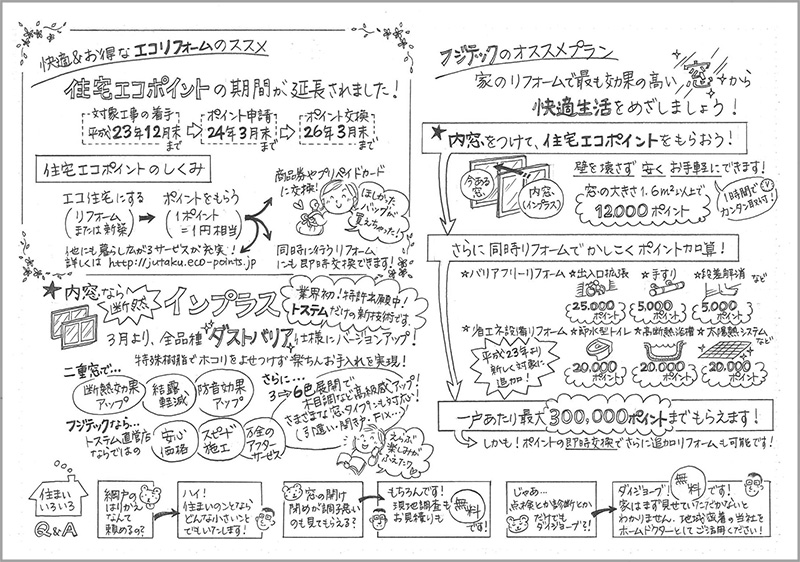 快適&お得なエコリフォームのススメ
住宅エコポイントの期間が延長されました！
対象工事の着手
平成23年12月末まで
ポイント申請
24年3月末まで
ポイント交換
26年3月末まで
住宅エコポイントのしくみ
エコ住宅にする
(リフォームまたは新築)
ポイントをもらう
(1ポイント=1円相当)
商品券やプリペイドカードに交換！
ほしかったバッグが買えちゃった！
同時に行うリフォームにも即時交換できます！
他にも暮らし広がるサービスが充実！
詳しくは http://jutaku.eco-points.jp
★内窓なら断然インプラス
業界初！特許出願中！
トステムだけの新技術です。
3月より、全品種"ダストバリア"仕様にバージョンアップ！
特殊樹脂でホコリをよせつけず楽ちんお手入れを実現！
二重窓で…
断熱効果アップ
結露軽減
防音効果アップ
さらに…
3→6色展開で
木目調など高級感アップ！
さまざまな窓タイプにも対応！
(引違い・開き戸・Fix…)
フジテックなら…
トステム直営店ならではの
安心価格
スピード施工
万全のアフターサービス
えらぶ楽しみがふえたワ
フジテックのオススメプラン
家のリフォームで最も効果の高い窓から
快適生活をめざしましょう！
★内窓をつけて、住宅エコポイントをもらおう！
今ある窓
内窓(インプラス)
壁を壊さず 安く お手軽にできます！
窓の大きさ1.6㎡以上で
12,000ポイント
1時間でカンタン取付！
さらに同時リフォームでかしこくポイント加算！
★バリアフリーリフォーム
★出入口拡張
25,000ポイント
★手すり
5,000ポイント
★段差解消 など
5,000ポイント
★省エネ設備リフォーム
平成23年より新しく対象に追加！
★節水型トイレ
20,000ポイント
★高断熱浴槽
20,000ポイント
★太陽熱システム など
20,000ポイント
一戸あたり最大300,000ポイントまでもらえます！
しかも！ポイントの即時交換でさらに追加リフォームも可能です！
住まいいろいろ
Q&A
網戸のはりかえなんて頼めるの？
ハイ！
住まいのことならどんな小さいことでもいたします！
窓の開け閉めが調子悪いのも見てもらえる？
もちろんです！
現地調査もお見積りも無料です！
じゃあ…
点検とか診断とかだけでもダイジョーブ？！
ダイジョーブ！無料です！
家はまず見せていただかないとわかりません。地域密着の当社をホームドクターとしてご活用ください！